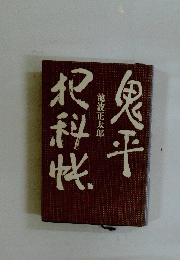 鬼平
池波正太郎
犯科帳